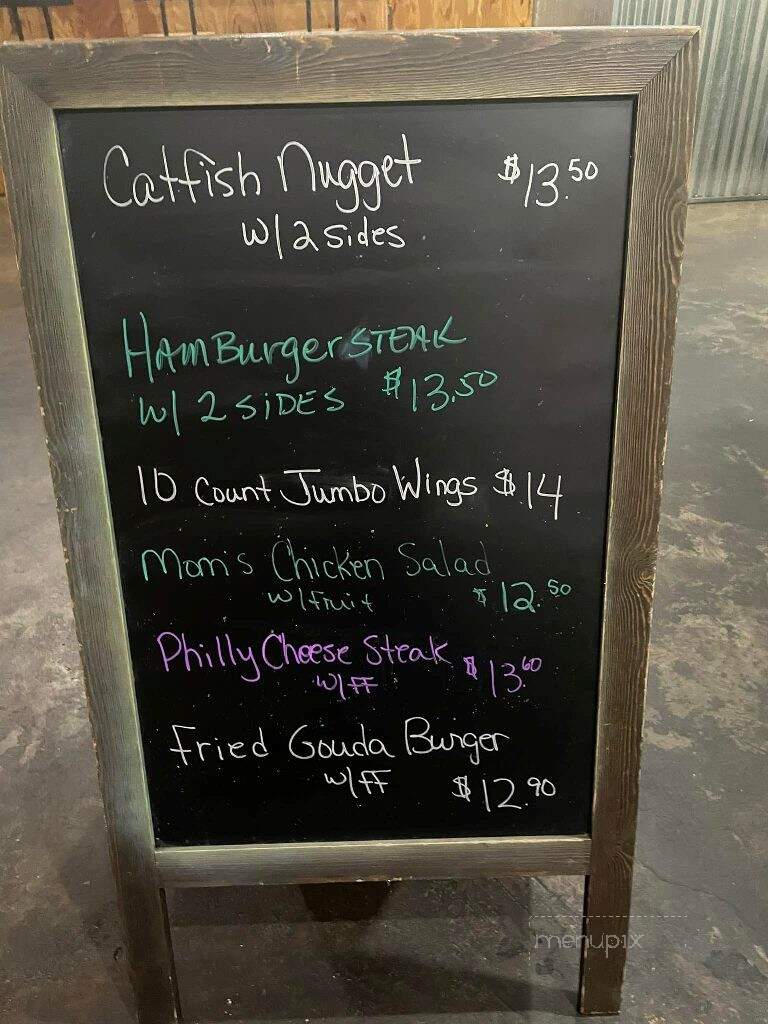 Catfish Nugget $13.50
w/2 sides
HamBurger STEAK
w/ 2 SiDES $13.50
10 Count Jumbo Wings $14
Mom's Chicken Salad
w/fruit $12.50
Philly Cheese Steak $13.60
w/ff
Fried Gouda Burger
w/ff $12.90
menupix